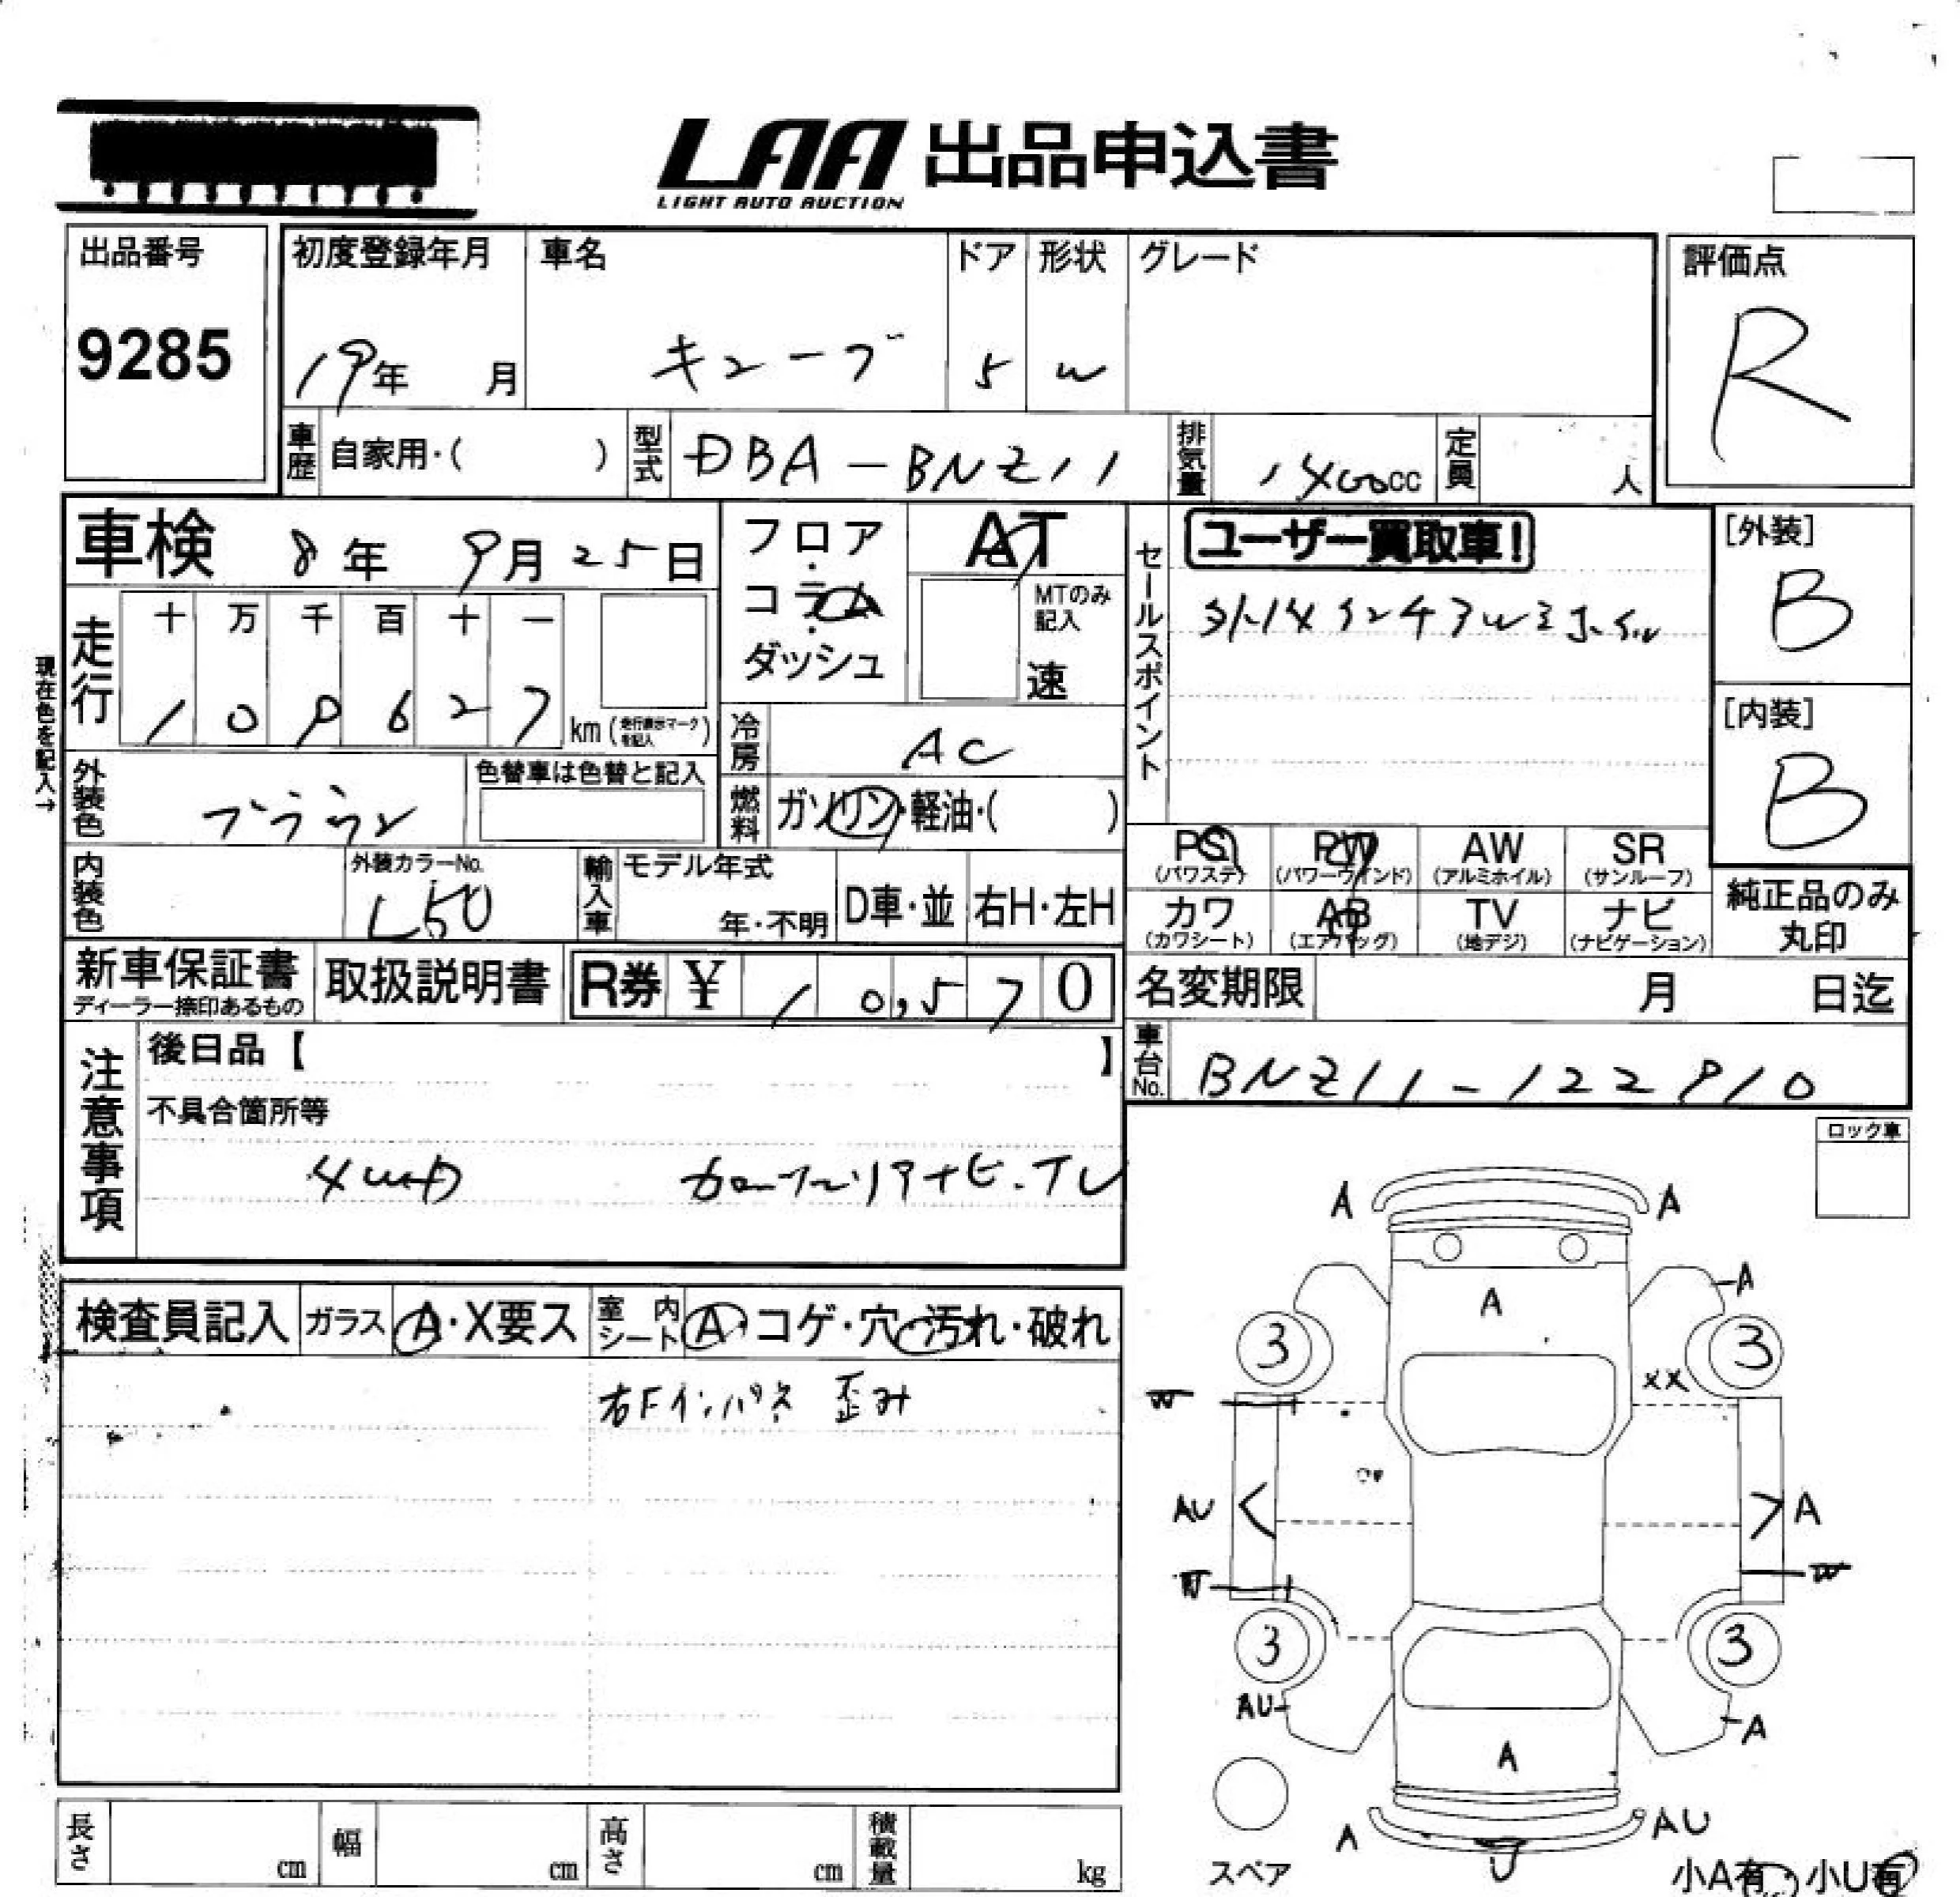 LAA 出品申込書
LIGHT AUTO AUCTION
出品番号
9285
初度登録年月
19年 月
車名
キューブ
ドア
5
形状
W
グレード
評価点
R
車歴 自家用・( )
型式 DBA-BNZ11
排気量 1400cc
定員 人
車検 8年 9月25日
走行
十 万 千 百 十 一
1 0 9 6 2 7 km (走行表示マークを記入)
現在色を記入→
外装色 ブラウン
色替車は色替と記入
内装色
外装カラーNo.
L50
輸入車
モデル年式
年・不明
D車・並
右H・左H
フロア・コラム・ダッシュ
AT
MTのみ記入
速
冷房 AC
燃料 ガソリン・軽油・( )
セールスポイント
ユーザー買取車!
[外装]
B
[内装]
B
PS (パワステ)
PW (パワーウインド)
AW (アルミホイル)
SR (サンルーフ)
カワ (カワシート)
AB (エアバッグ)
TV (地デジ)
ナビ (ナビゲーション)
純正品のみ丸印
新車保証書
ディーラー捺印あるもの
取扱説明書
R券 ¥ 10,570
名変期限 月 日迄
車台No. BNZ11-122910
注意事項
後日品【 】
不具合箇所等
4WD
ナビ・TV
ロック車
検査員記入
ガラス A・X要ス
室内シート A・コゲ・穴・汚れ・破れ
右Fインパネ 歪み
A A
A
A
3 3
XX
W
AU A
W W
3 3
AU A
A
A AU
U
スペア
小A有・小U有
長さ cm
幅 cm
高さ cm
積載量 kg